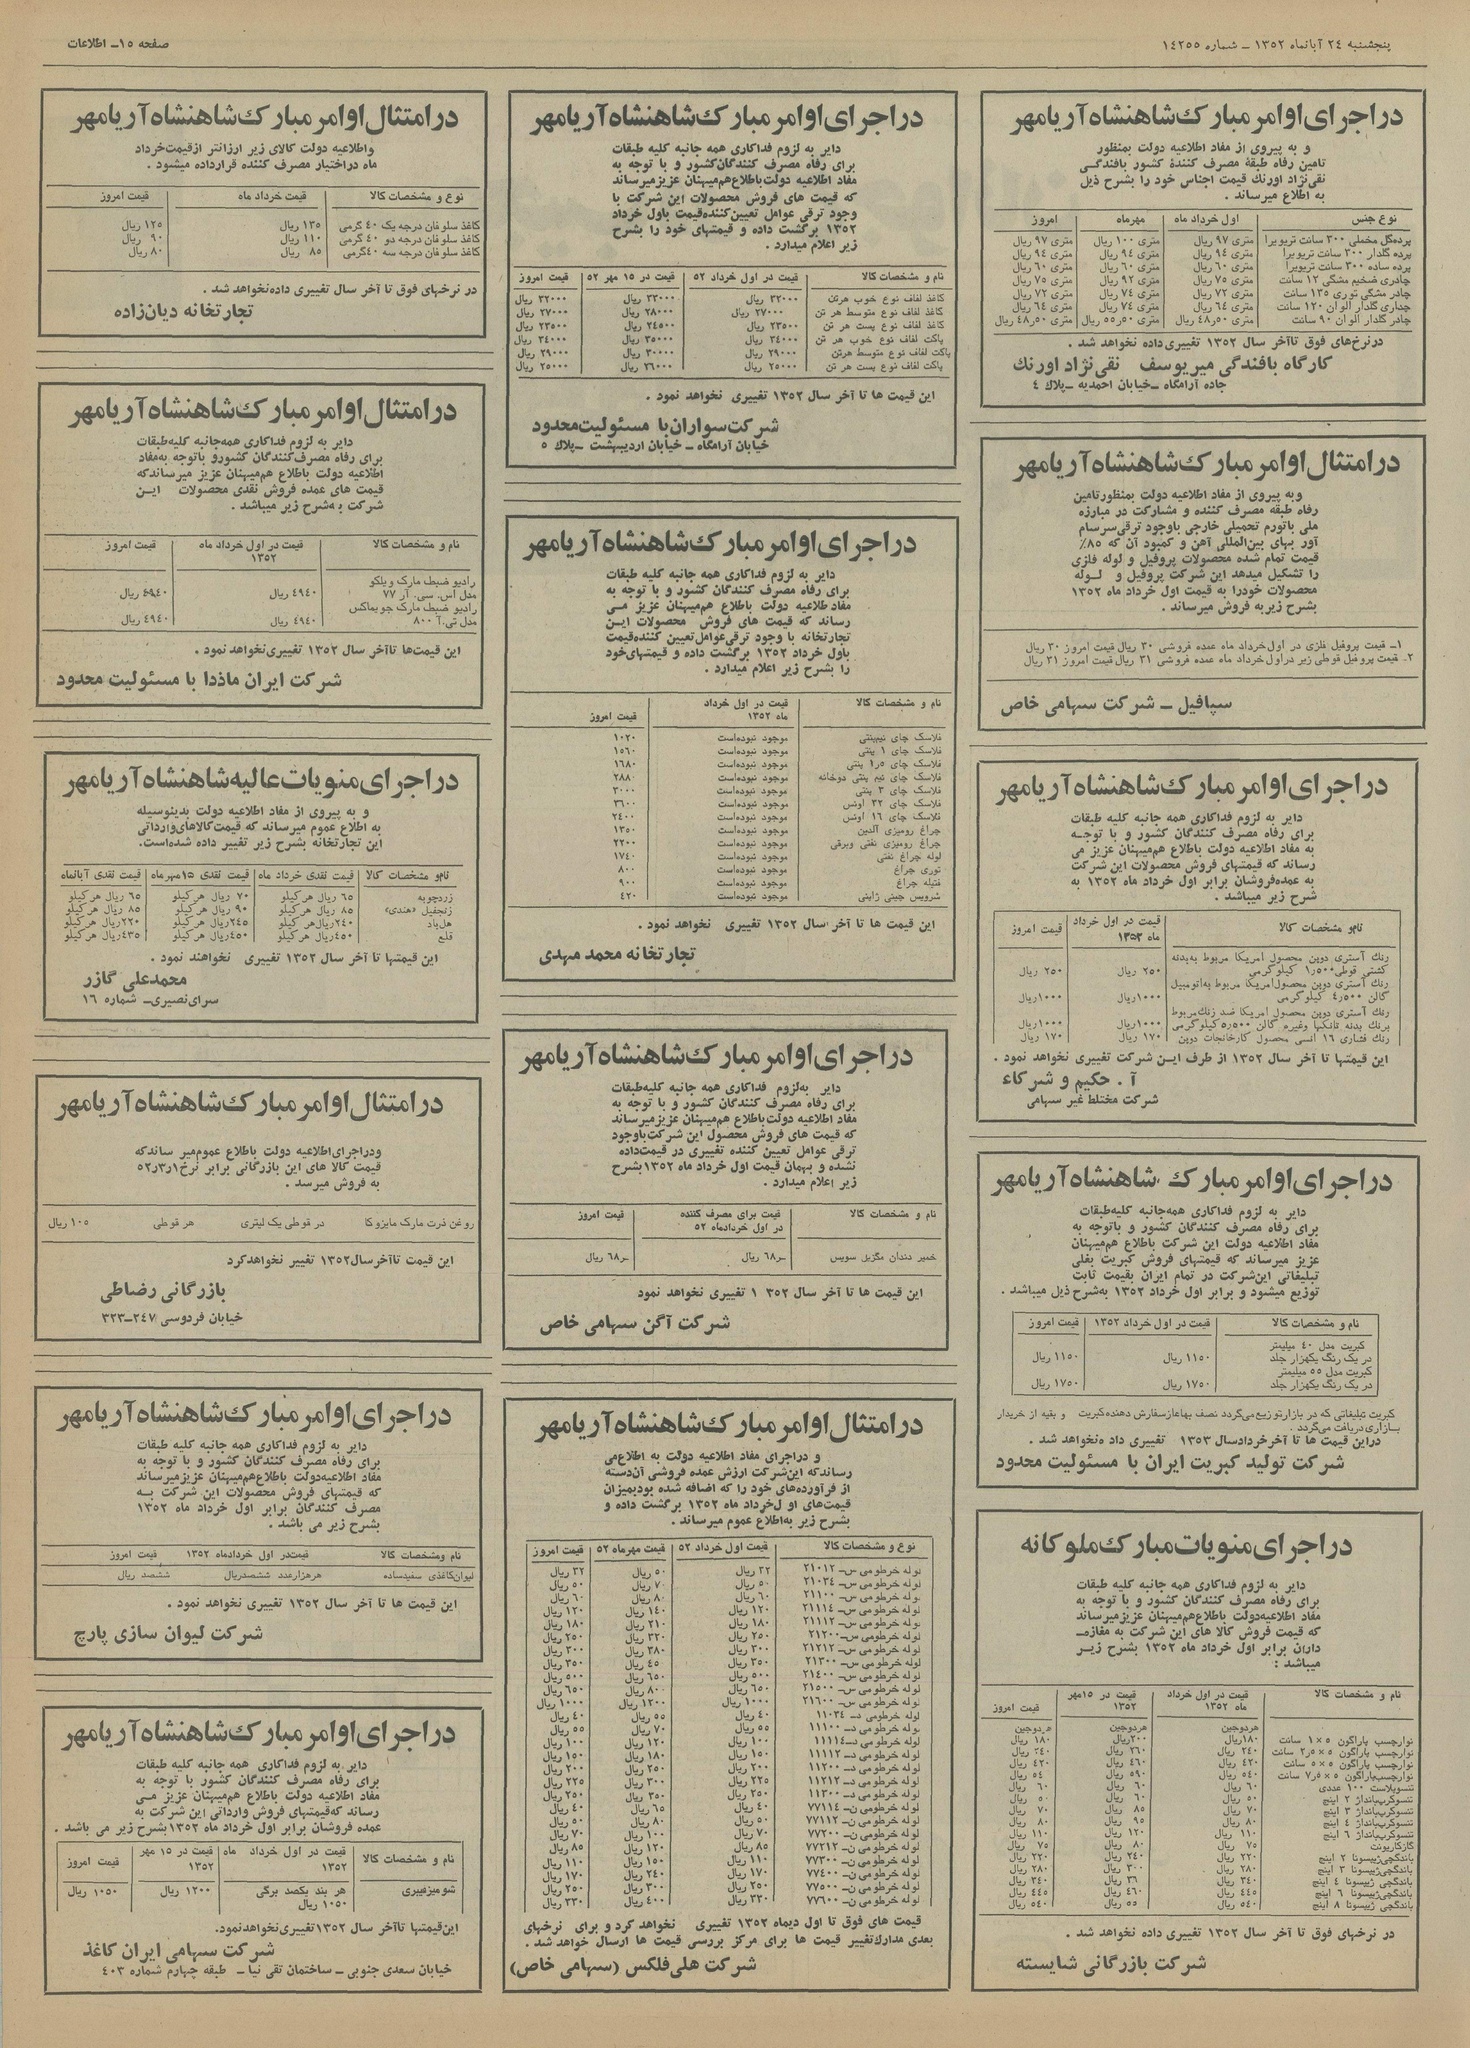 پنجشنبه ۲۴ آبانماه ۱۳۵۲ ـ شماره ۱۴۲۵۵
صفحه ۱۵ـ اطلاعات
در اجرای اوامر مبارک شاهنشاه آریامهر
و به پیروی از مفاد اطلاعیه دولت بمنظور
تامین رفاه طبقهٔ مصرف کنندهٔ کشور بافندگی
نقی‌نژاد اورنک قیمت اجناس خود را بشرح ذیل
به اطلاع میرساند .
نوع جنس اول خرداد ماه مهرماه امروز
پرده‌گل مخملی ۳۰۰ سانت تریویرا متری ۹۷ ریال متری ۱۰۰ ریال متری ۹۷ ریال
پرده گلدار ۳۰۰ سانت تریویرا متری ۹۴ ریال متری ۹۴ ریال متری ۹۴ ریال
پرده ساده ۳۰۰ سانت تریویرا متری ۶۰ ریال متری ۶۰ ریال متری ۶۰ ریال
چادری ضخیم مشگی ۱۲ سانت متری ۷۵ ریال متری ۹۲ ریال متری ۷۵ ریال
چادر مشگی توری ۱۳۵ سانت متری ۷۲ ریال متری ۷۴ ریال متری ۷۲ ریال
چداری گلدار الوان ۱۲۰ سانت متری ۶۴ ریال متری ۷۴ ریال متری ۶۴ ریال
چادر گلدار الوان ۹۰ سانت متری ۵۰ر۴۸ ریال متری ۵۰ر۵۵ ریال متری ۵۰ر۴۸ ریال
درنرخ‌های فوق تاآخر سال ۱۳۵۲ تغییری‌داده نخواهد شد .
کارگاه بافندگی میریوسف نقی‌نژاد اورنك
جاده آرامگاه ـ‌خیابان احمدیه ـ‌پلاك ۴
در امتثال اوامر مبارک شاهنشاه آریامهر
وبه پیروی از مفاد اطلاعیه دولت بمنظورتامین
رفاه طبقه مصرف کننده و مشارکت در مبارزه
ملی باتورم تحمیلی خارجی باوجود ترقی‌سرسام
آور بهای بین‌المللی آهن و کمبود آن که ۸۵٪
قیمت تمام شده محصولات پروفیل و لوله فلزی
را تشکیل میدهد این شرکت پروفیل و لـوله
محصولات خودرا به قیمت اول خرداد ماه ۱۳۵۲
بشرح زیربه فروش میرساند .
۱ـ قیمت پروفیل فلزی در اول‌خرداد ماه عمده فروشی ۳۰ ریال‌قیمت امروز ۳۰ ریال
۲ـ قیمت پروفیل قوطی زیر دراول‌خرداد ماه عمده فروشی ۳۱ ریال‌قیمت امروز ۳۱ ریال
سپافیل ـ شرکت سهامی خاص
در اجرای اوامر مبارک شاهنشاه آریامهر
دایر به لزوم فداکاری همه جانبه کلیه طبقات
برای رفاه مصرف کنندگان کشور و با توجـه
به مفاد اطلاعیه دولت باطلاع هم‌میهنان عزیز می
رساند که قیمتهای فروش محصولات این شرکت
به عمده‌فروشان برابر اول خرداد ماه ۱۳۵۲ به
شرح زیر میباشد .
نام‌و مشخصات کالا قیمت در اول خرداد ماه ۱۳۵۲ قیمت امروز
رنك آستری دوپن محصول آمریکا مربوط به‌بدنه
کشتی قوطی۱٫۵۰۰ کیلوگرمی ۲۵۰ ریال ۲۵۰ ریال
رنك آستری دوپن محصول‌آمریکا مربوط به‌اتومبیل
گالن ۴٫۵۰۰ کیلوگرمی ۱۰۰۰ریال ۱۰۰۰ریال
رنك آستری دوپن محصول امریکا ضد زنك‌مربوط
برنك بدنه تانکها وغیره گالن ۵٫۵۰۰کیلوگرمی ۱۰۰۰ریال ۱۰۰۰ریال
رنك فشاری ۱۶ انسی محصول کارخانجات دوپن ۱۷۰ ریال ۱۷۰ ریال
این قیمتها تا آخر سال ۱۳۵۲ از طرف ایـن شرکت تغییری نخواهد نمود .
آ . حکیم و شرکاء
شرکت مختلط غیر سهامی
در اجرای اوامر مبارک شاهنشاه آریامهر
دایر به لزوم فداکاری همه‌جانبه کلیه‌طبقات
برای رفاه مصرف کنندگان کشور و باتوجه به
مفاد اطلاعیه دولت این شرکت باطلاع هم‌میهنان
عزیز میرساند که قیمتهای فروش کبریت بغلی
تبلیغاتی این‌شرکت در تمام ایران بقیمت ثابت
توزیع میشود و برابر اول خرداد ۱۳۵۲ به‌شرح ذیل میباشد .
نام و مشخصات کالا قیمت در اول خرداد ۱۳۵۲ قیمت امروز
کبریت مدل ۴۰ میلیمتر
در یک رنگ یکهزار جلد ۱۱۵۰ ریال ۱۱۵۰ ریال
کبریت مدل ۵۵ میلیمتر
در یک رنگ یکهزار جلد ۱۷۵۰ ریال ۱۷۵۰ ریال
کبریت تبلیغاتی که در بازارتوزیع‌می‌گردد نصف بهاءازسفارش دهنده‌کبریت و بقیه از خریدار
بازاری‌دریافت می‌گردد .
دراین قیمت ها تا آخرخردادسال ۱۳۵۳ تغییری داد ه‌نخواهد شد .
شرکت تولید کبریت ایران با مسئولیت محدود
در اجرای منویات مبارک ملوکانه
دایر به لزوم فداکاری همه جانبه کلیه طبقات
برای رفاه مصرف کنندگان کشور و با توجه به
مفاد اطلاعیه‌دولت باطلاع هم‌میهنان عزیزمیرساند
که قیمت فروش کالا های این شرکت به مغازه‌ـ
داران برابر اول خرداد ماه ۱۳۵۲ بشرح زیـر
میباشد :
نام و مشخصات کالا قیمت در اول خرداد ماه ۱۳۵۲ قیمت در ۱۵مهر ۱۳۵۲ قیمت امروز
هردوجین هردوجین هردوجین
نوارچسب پاراگون ۵×۱ سانت ۱۸۰ریال ۲۰۰ریال ۱۸۰ ریال
نوارچسب پاراگون ۵×۲٫۵ سانت ۲۴۰ ریال ۲۶۰ ریال ۲۴۰ ریال
نوارچسب پاراگون ۵×۵ سانت ۴۲۰ ریال ۴۶۰ ریال ۴۲۰ ریال
نوارچسب‌پاراگون ۵×۷٫۵ سانت ۵۴۰ ریال ۵۹۰ ریال ۵۴ ریال
تنسوپلاست ۱۰۰ عددی ۶۰ ریال ۶۰ ریال ۶۰ ریال
تنسوکرپ‌بانداژ ۲ اینچ ۵۰ ریال ۶۰ ریال ۵۰ ریال
تنسوکرپ‌بانداژ ۳ اینچ ۷۰ ریال ۸۵ ریال ۷۰ ریال
تنسوکرپ‌بانداژ ۴ اینچ ۸۰ ریال ۹۵ ریال ۸۰ ریال
تنسوکرپ‌بانداژ ۶ اینچ ۱۱۰ ریال ۱۲۰ ریال ۱۱۰ ریال
گازکاربونت ۷۵ ریال ۸۰ ریال ۷۵ ریال
باندگچی‌ژیپسونا ۲ اینچ ۲۲۰ ریال ۲۴۰ ریال ۲۲۰ ریال
باندگچی‌ژیپسونا ۳ اینچ ۲۸۰ ریال ۳۰۰ ریال ۲۸۰ ریال
باندگچی ژیپسونا ۴ اینچ ۳۴۰ ریال ۳۶ ریال ۳۴۰ ریال
باندگچی ژیپسونا ۶ اینچ ۴۴۵ ریال ۴۶۰ ریال ۴۴۵ ریال
باندگچی ژیپسونا ۸ اینچ ۵۴۰ ریال ۵۵ ریال ۵۴۰ ریال
در نرخهای فوق تا آخر سال ۱۳۵۲ تغییری داده نخواهد شد .
شرکت بازرگانی شایسته
در اجرای اوامر مبارک شاهنشاه آریامهر
دایر به لزوم فداکاری همه جانبه کلیه طبقات
برای رفاه مصرف کنندگان‌کشور و با توجه به
مفاد اطلاعیه دولت‌باطلاع‌هم‌میهنان عزیزمیرساند
که قیمت های فروش محصولات این شرکت با
وجود ترقی عوامل تعیین‌کننده‌قیمت باول خرداد
۱۳۵۲ برگشت داده و قیمتهای خود را بشرح
زیر اعلام میدارد .
نام و مشخصات کالا قیمت در اول خرداد ۵۲ قیمت در ۱۵ مهر ۵۲ قیمت امروز
کاغذ لفاف نوع خوب هرتن ۳۲۰۰۰ ریال ۳۳۰۰۰ ریال ۳۲۰۰۰ ریال
کاغذ لفاف نوع متوسط هر تن ۲۷۰۰۰ ریال ۲۸۰۰۰ ریال ۲۷۰۰۰ ریال
کاغذ لفاف نوع پست هر تن ۲۳۵۰۰ ریال ۲۴۵۰۰ ریال ۲۳۵۰۰ ریال
پاکت لفاف نوع خوب هر تن ۳۴۰۰۰ ریال ۳۵۰۰۰ ریال ۳۴۰۰۰ ریال
پاکت لفاف نوع متوسط هرتن ۲۹۰۰۰ ریال ۳۰۰۰۰ ریال ۲۹۰۰۰ ریال
پاکت لفاف نوع پست هر تن ۲۵۰۰۰ ریال ۲۶۰۰۰ ریال ۲۵۰۰۰ ریال
این قیمت ها تا آخر سال ۱۳۵۲ تغییری نخواهد نمود .
شرکت سواران با مسئولیت محدود
خیابان آرامگاه ـ خیابان اردیبهشت ـ‌پلاك ۵
در اجرای اوامر مبارک شاهنشاه آریامهر
دایر به لزوم فداکاری همه جانبه کلیه طبقات
برای رفاه مصرف کنندگان کشور و با توجه به
مفاد طلاعیه دولت باطلاع هم‌میهنان عزیز مـی
رساند که قیمت های فروش محصولات ایـن
تجارتخانه با وجود ترقی‌عوامل تعیین‌کننده‌قیمت
باول خرداد ۱۳۵۲ برگشت داده و قیمتهای‌خود
را بشرح زیر اعلام میدارد .
نام و مشخصات کالا قیمت در اول خرداد ماه ۱۳۵۲ قیمت امروز
فلاسک چای نیم‌پنتی موجود نبوده‌است ۱۰۲۰
فلاسک چای ۱ پنتی موجود نبوده‌است ۱۵۶۰
فلاسک چای ۵ر۱ پنتی موجود نبوده‌است ۱۶۸۰
فلاسک چای نیم پنتی دوخانه موجود نبوده‌است ۲۸۸۰
فلاسک چای ۳ پنتی موجود نبوده‌است ۳۰۰۰
فلاسک چای ۳۲ اونس موجود نبوده‌است ۳۶۰۰
فلاسک چای ۱۶ اونس موجود نبوده‌است ۲۴۰۰
چراغ رومیزی آلدین موجود نبوده‌است ۱۳۵۰
چراغ رومیزی نفتی وبرقی موجود نبوده‌است ۲۲۰۰
لوله چراغ نفتی موجود نبوده‌است ۱۷۴۰
توری چراغ موجود نبوده‌است ۸۰۰
فتیله چراغ موجود نبوده‌است ۹۰۰
سرویس چینی ژاپنی موجود نبوده‌است ۴۲۰
این قیمت ها تا آخر سال ۱۳۵۲ تغییری نخواهد نمود .
تجارتخانه محمد مهدی
در اجرای اوامر مبارک شاهنشاه آریامهر
دایر به‌لزوم فداکاری همه جانبه کلیه‌طبقات
برای رفاه مصرف کنندگان کشور و با توجه به
مفاد اطلاعیه دولت‌باطلاع هم‌میهنان عزیزمیرساند
که قیمت های فروش محصول این شرکت‌باوجود
ترقی عوامل تعیین کننده تغییری در قیمت‌داده
نشده و بهمان قیمت اول خرداد ماه ۱۳۵۲بشرح
زیر اعلام میدارد .
نام و مشخصات کالا قیمت برای مصرف کننده در اول خردادماه ۵۲ قیمت امروز
خمیر دندان مگزیل سویس ـر۶۸ ریال ـر۶۸ ریال
این قیمت ها تا آخر سال ۱۳۵۲ تغییری نخواهد نمود
شرکت آگن سهامی خاص
در امتثال اوامر مبارک شاهنشاه آریامهر
و دراجرای مفاد اطلاعیه دولت به اطلاع‌می
رساندکه این‌شرکت ارزش عمده فروشی آن‌دسته
از فرآورده‌های خود را که اضافه شده بودبمیزان
قیمت‌های او ل‌خرداد ماه ۱۳۵۲ برگشت داده و
بشرح زیر به‌اطلاع عموم میرساند .
نوع و مشخصات کالا قیمت اول خرداد ۵۲ قیمت مهرماه ۵۲ قیمت امروز
لوله خرطومی س‌ـ ۲۱۰۱۲ ۳۲ ریال ۵۰ ریال ۳۲ ریال
لوله خرطومی س‌ـ ۲۱۰۳۴ ۵۰ ریال ۷۰ ریال ۵۰ ریال
لوله خرطومی س‌ـ ۲۱۱۰۰ ۶۰ ریال ۸۰ ریال ۶۰ ریال
لوله خرطومی س‌ـ ۲۱۱۱۴ ۱۲۰ ریال ۱۴۰ ریال ۱۲۰ ریال
لوله خرطومی س‌ـ ۲۱۱۱۲ ۱۸۰ ریال ۲۱۰ ریال ۱۸۰ ریال
لوله خرطومی س‌ـ ۲۱۲۰۰ ۲۵۰ ریال ۳۲۰ ریال ۲۵۰ ریال
لوله خرطومی س‌ـ ۲۱۲۱۲ ۳۰۰ ریال ۳۸۰ ریال ۳۰۰ ریال
لوله خرطومی س‌ـ ۲۱۳۰۰ ۳۵۰ ریال ۴۵۰ ریال ۳۵۰ ریال
لوله خرطومی س‌ـ ۲۱۴۰۰ ۵۰۰ ریال ۶۵۰ ریال ۵۰۰ ریال
لوله خرطومی س‌ـ ۲۱۵۰۰ ۶۵۰ ریال ۸۰۰ ریال ۶۵۰ ریال
لوله خرطومی س‌ـ ۲۱۶۰۰ ۱۰۰۰ ریال ۱۲۰۰ ریال ۱۰۰۰ ریال
لوله خرطومی د‌ـ ۱۱۰۳۴ ۴۰ ریال ۵۵ ریال ۴۰ ریال
لوله خرطومی د‌ـ ۱۱۱۰۰ ۵۵ ریال ۷۰ ریال ۵۵ ریال
لوله خرطومی د‌ـ۱۱۱۱۴ ۱۰۰ ریال ۱۲۰ ریال ۱۰۰ ریال
لوله خرطومی د‌ـ ۱۱۱۱۲ ۱۵۰ ریال ۱۸۰ ریال ۱۵۰ ریال
لوله خرطومی د‌ـ ۱۱۲۰۰ ۲۰۰ ریال ۲۵۰ ریال ۲۰۰ ریال
لوله خرطومی د‌ـ ۱۱۲۱۲ ۲۲۵ ریال ۳۰۰ ریال ۲۲۵ ریال
لوله خرطومی د‌ـ ۱۱۳۰۰ ۲۵۰ ریال ۳۵۰ ریال ۲۵۰ ریال
لوله خرطومی ن‌ـ ۷۷۱۱۴ ۴۰ ریال ۶۵ ریال ۴۰ ریال
لوله خرطومی ن‌ـ ۷۷۱۱۲ ۵۰ ریال ۸۰ ریال ۵۰ ریال
لوله خرطومی ن‌ـ ۷۷۲۰۰ ۷۰ ریال ۱۰۰ ریال ۷۰ ریال
لوله خرطومی ن‌ـ ۷۷۲۱۲ ۸۵ ریال ۱۲۰ ریال ۸۵ ریال
لوله خرطومی ن‌ـ ۷۷۳۰۰ ۱۱۰ ریال ۱۵۰ ریال ۱۱۰ ریال
لوله خرطومی ن‌ـ ۷۷۴۰۰ ۱۷۰ ریال ۲۴۰ ریال ۱۷۰ ریال
لوله خرطومی ن‌ـ ۷۷۵۰۰ ۲۵۰ ریال ۳۰۰ ریال ۲۵۰ ریال
لوله خرطومی ن‌ـ ۷۷۶۰۰ ۳۳۰ ریال ۴۰۰ ریال ۳۳۰ ریال
قیمت های فوق تا اول دیماه ۱۳۵۲ تغییری نخواهد کرد و برای نرخهای
بعدی مدارك‌تغییر قیمت ها برای مرکز بررسی قیمت ها ارسال خواهد شد .
شرکت هلی‌فلکس (سهامی خاص)
در امتثال اوامر مبارک شاهنشاه آریامهر
واطلاعیه دولت کالای زیر ارزانتر ازقیمت‌خرداد
ماه دراختیار مصرف کننده قرارداده میشود .
نوع و مشخصات کالا قیمت خرداد ماه قیمت امروز
کاغذ سلوفان درجه یک ۴۰ گرمی ۱۳۵ ریال ۱۲۵ ریال
کاغذ سلوفان درجه دو ۴۰ گرمی ۱۱۰ ریال ۹۰ ریال
کاغذ سلوفان درجه سه ۴۰گرمی ۸۵ ریال ۸۰ ریال
در نرخهای فوق تا آخر سال تغییری داده‌نخواهد شد .
تجارتخانه دیان‌زاده
در امتثال اوامر مبارک شاهنشاه آریامهر
دایر به لزوم فداکاری همه‌جانبه کلیه‌طبقات
برای رفاه مصرف‌کنندگان کشورو باتوجه به‌مفاد
اطلاعیه دولت باطلاع هم‌میهنان عزیز میرساندکه
قیمت های عمده فروش نقدی محصولات ایـن
شرکت به‌شرح زیر میباشد .
نام و مشخصات کالا قیمت در اول خرداد ماه ۱۳۵۲ قیمت امروز
رادیو ضبط مارک ویلکو
مدل اس. سی. آر ۷۷ ۴۹۴۰ ریال ۴۹۴۰ ریال
رادیو ضبط مارک جویماکس
مدل تی.آ ۸۰۰ ۴۹۴۰ ریال ۴۹۴۰ ریال
این قیمت‌ها تاآخر سال ۱۳۵۲ تغییری‌نخواهد نمود .
شرکت ایران ماذدا با مسئولیت محدود
در اجرای منویات عالیه شاهنشاه آریامهر
و به پیروی از مفاد اطلاعیه دولت بدینوسیله
به اطلاع عموم میرساند که قیمت‌کالاهای‌وارداتی
این تجارتخانه بشرح زیر تغییر داده شده‌است.
نام‌و مشخصات کالا قیمت نقدی خرداد ماه قیمت نقدی ۱۵مهرماه قیمت نقدی آبانماه
زردچوبه ۶۵ ریال هرکیلو ۷۰ ریال هرکیلو ۶۵ ریال هرکیلو
زنجفیل «هندی» ۸۵ ریال هرکیلو ۹۰ ریال هرکیلو ۸۵ ریال هرکیلو
هل‌باد ۲۴۰ریال‌هر کیلو ۲۴۵ریال هرکیلو ۲۲۰ریال هرکیلو
قلع ۴۵۰ریال هرکیلو ۴۵۰ریال هرکیلو ۴۳۵ریال هرکیلو
این قیمتها تا آخر سال ۱۳۵۲ تغییری نخواهند نمود .
محمدعلی گازر
سرای‌نصیری‌ـ شماره ۱۶
در امتثال اوامر مبارک شاهنشاه آریامهر
ودراجرای‌اطلاعیه دولت باطلاع عموم‌میر ساندکه
قیمت کالا های این بازرگانی برابر نرخ ۱ر۳ر۵۲
به فروش میرسد .
روغن ذرت مارک مایزوکا در قوطی یک لیتری هر قوطی ۱۰۵ ریال
این قیمت تاآخرسال۱۳۵۲ تغییر نخواهدکرد
بازرگانی رضاطی
خیابان فردوسی ۲۴۷ـ۳۲۳
در اجرای اوامر مبارک شاهنشاه آریامهر
دایر به لزوم فداکاری همه جانبه کلیه طبقات
برای رفاه مصرف کنندگان کشور و با توجه به
مفاد اطلاعیه‌دولت باطلاع‌هم‌میهنان عزیزمیرساند
که قیمتهای فروش محصولات این شرکت بـه
مصرف کنندگان برابر اول خرداد ماه ۱۳۵۲
بشرح زیر می باشد .
نام ومشخصات کالا قیمت‌در اول خردادماه ۱۳۵۲ قیمت امروز
لیوان‌کاغذی سفیدساده هرهزارعدد ششصدریال ششصد ریال
این قیمت ها تا آخر سال ۱۳۵۲ تغییری نخواهد نمود .
شرکت لیوان سازی پارچ
در اجرای اوامر مبارک شاهنشاه آریامهر
دایر به لزوم فداکاری همه جانبه کلیه طبقات
برای رفاه مصرف کنندگان کشور با توجه به
مفاد اطلاعیه دولت باطلاع هم‌میهنان عزیز مـی
رساند که‌قیمتهای فروش وارداتی این شرکت به
عمده فروشان برابر اول خرداد ماه ۱۳۵۲بشرح زیر می باشد .
نام و مشخصات کالا قیمت در اول خرداد ماه ۱۳۵۲ قیمت در ۱۵ مهر ۱۳۵۲ قیمت امروز
شومیزفیبری هر بند یکصد برگی ۱۰۵۰ ریال ۱۲۰۰ ریال ۱۰۵۰ ریال
این‌قیمتها تاآخر سال ۱۳۵۲تغییری‌نخواهدنمود.
شرکت سهامی ایران کاغذ
خیابان سعدی جنوبی ـ ساختمان تقی نیا ـ طبقه چهارم شماره ۴۰۳